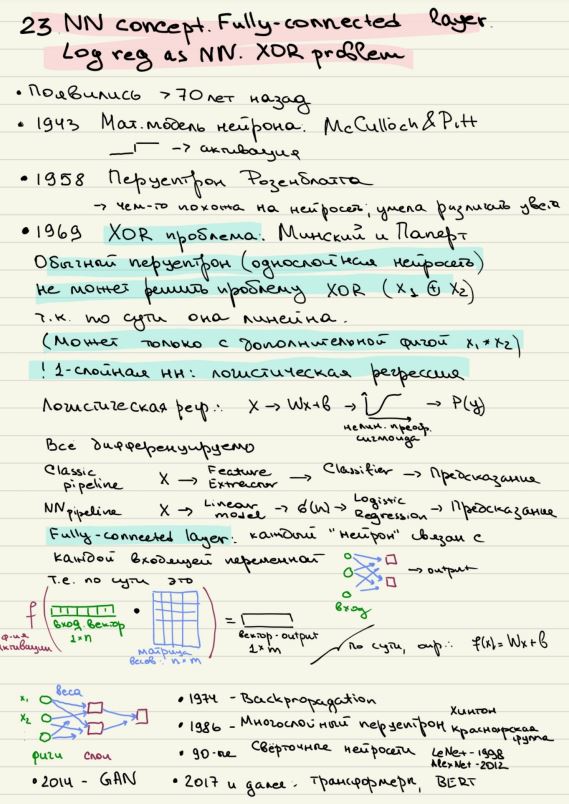 23 NN concept. Fully-connected layer.
Log reg as NN. XOR problem
• Появились > 70 лет назад
• 1943 Мат. модель нейрона. McCulloch & Pitt
→ активация
• 1958 Перцептрон Розенблатта
→ чем-то похожа на нейросеть; умела различать цвета
• 1969 XOR проблема. Минский и Паперт
Обычный перцептрон (однослойная нейросеть)
не может решить проблему XOR (x₁ ⊕ x₂)
т.к. по сути она линейна.
(может только с дополнительной фичой x₁ * x₂)
! 1-слойная нн: логистическая регрессия
Логистическая регр.: X → Wx+b → → P(y)
нелин. преобр.
сигмоида
Все дифференцируемо
Classic pipeline X → Feature Extractor → Classifier → Предсказание
NN pipeline X → Linear model → σ(W) → Logistic Regression → Предсказание
Fully-connected layer: каждый "нейрон" связан с
каждой входящей переменной → output
Т.е. по сути это вход
f ( • ) =
ф-ия активации
вход. вектор 1×n
матрица весов: n×m
вектор-output 1×m
по сути, опр.: f(x) = Wx+b
x₁ веса
x₂
фичи слои
• 1974 - Backpropagation
• 1986 - Многослойный перцептрон Хинтон Красноярская группа
• 90-ые Свёрточные нейросети LeNet - 1998 AlexNet - 2012
• 2014 - GAN • 2017 и далее: трансформеры, BERT